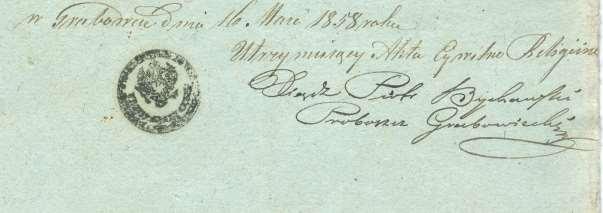 w Grabowcu dnia 16. Maia 1858 roku
Utrzymuiący Akta Cywilne Religiine
Xiądz Piotr Bychawski
Proboszcz Grabowiecki